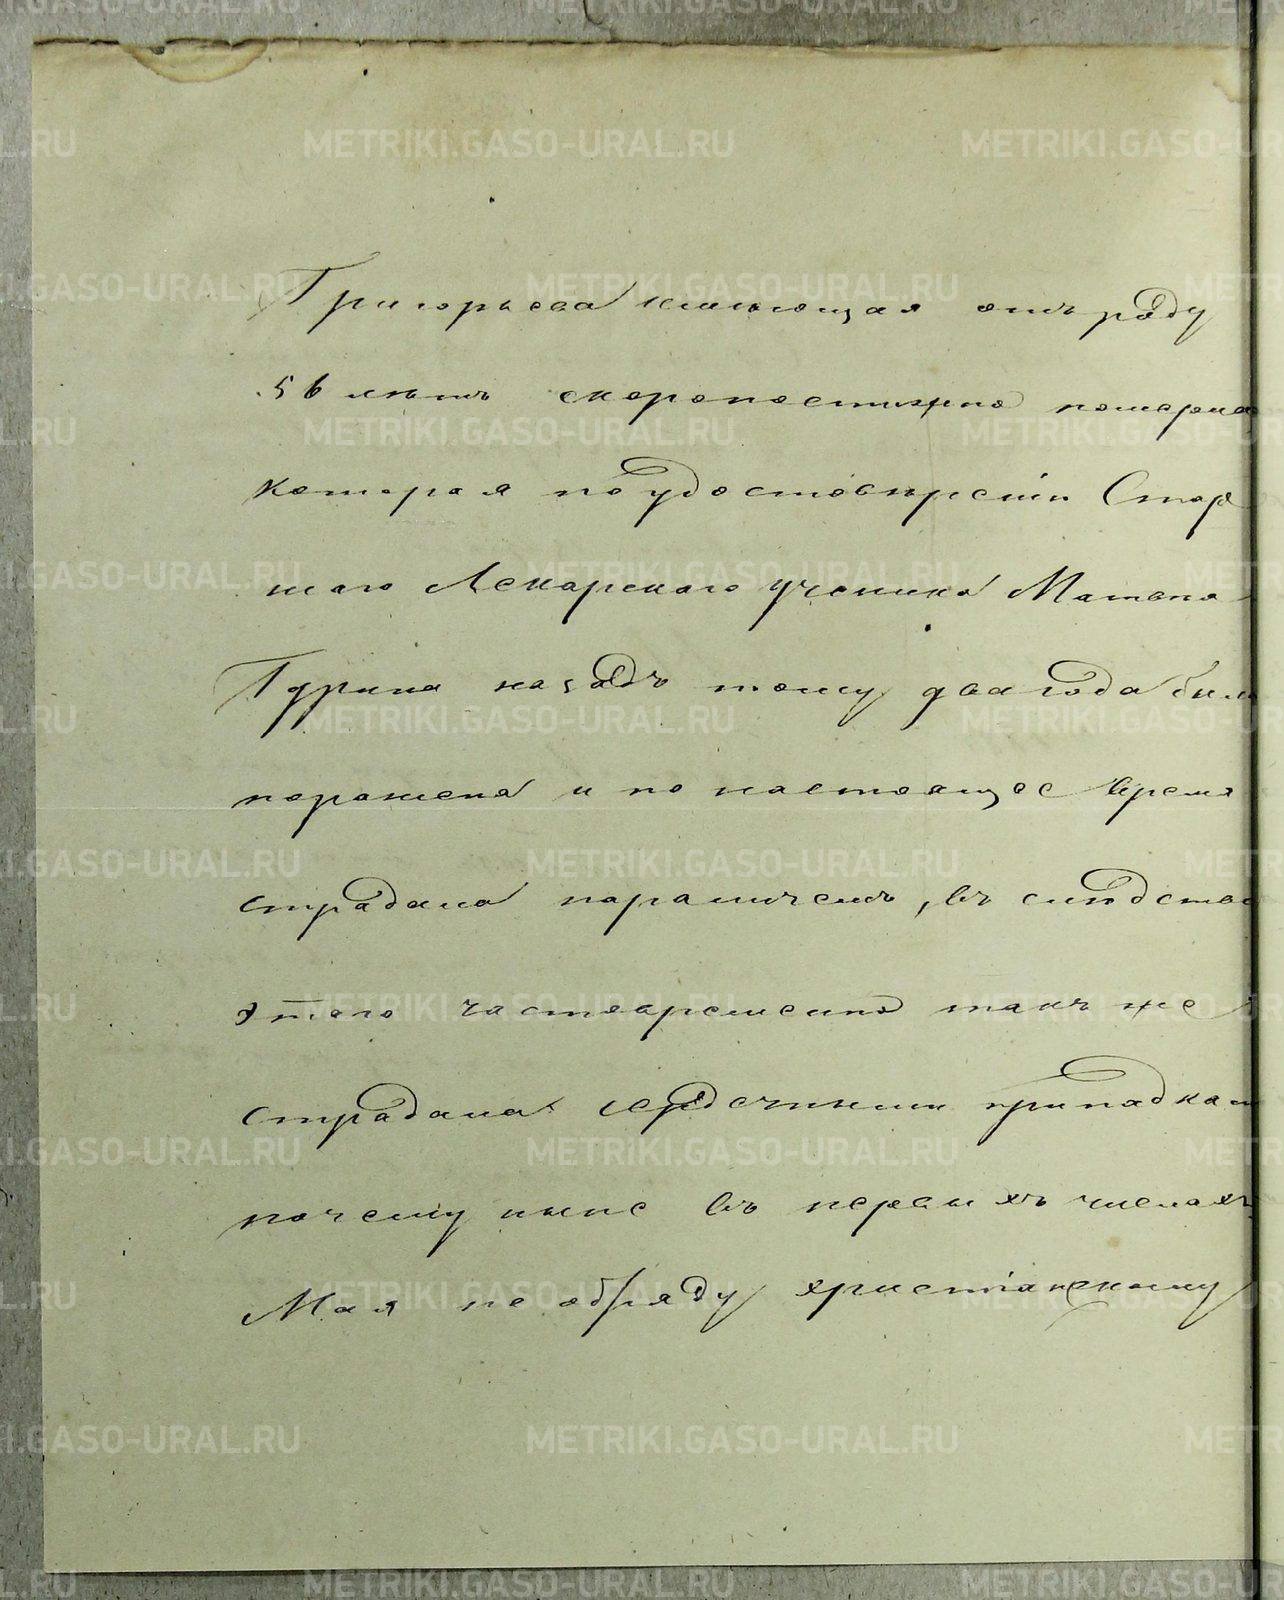 Григорьева имеющая отъ роду
56 лѣтъ скоропостижно померла
которая по удостовѣренію Стар
шаго Лекарскаго ученика Матвѣя
Турина назадъ тому два года была
поражена и по настоящее время
страдала параличемъ, въ слѣдствіе
этого частовременно такъ же
страдала сердечными припадками
почему нынѣ въ первыхъ числахъ
Мая по обряду христіанскому
METRIKI.GASO-URAL.RU